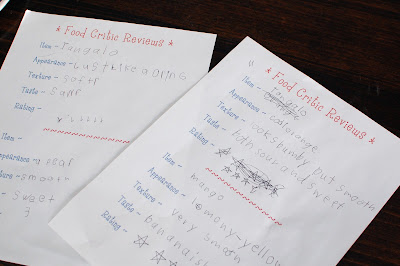 * Food Critic Reviews *
Item - Tangalo
Appearance - Just like a oring
Texture - soft
Taste - Saur
Rating -
Item -
Appearance - a pear
smooth
sweet
* Food Critic Reviews *
Item - Tangalo
Appearance - oal orange
Texture - looks bumby but smooth
Taste - both sour and sweet
Rating -
Item - mango
Appearance - lemony-yellow
Texture - very smooth
Taste - bananaish
Rating -